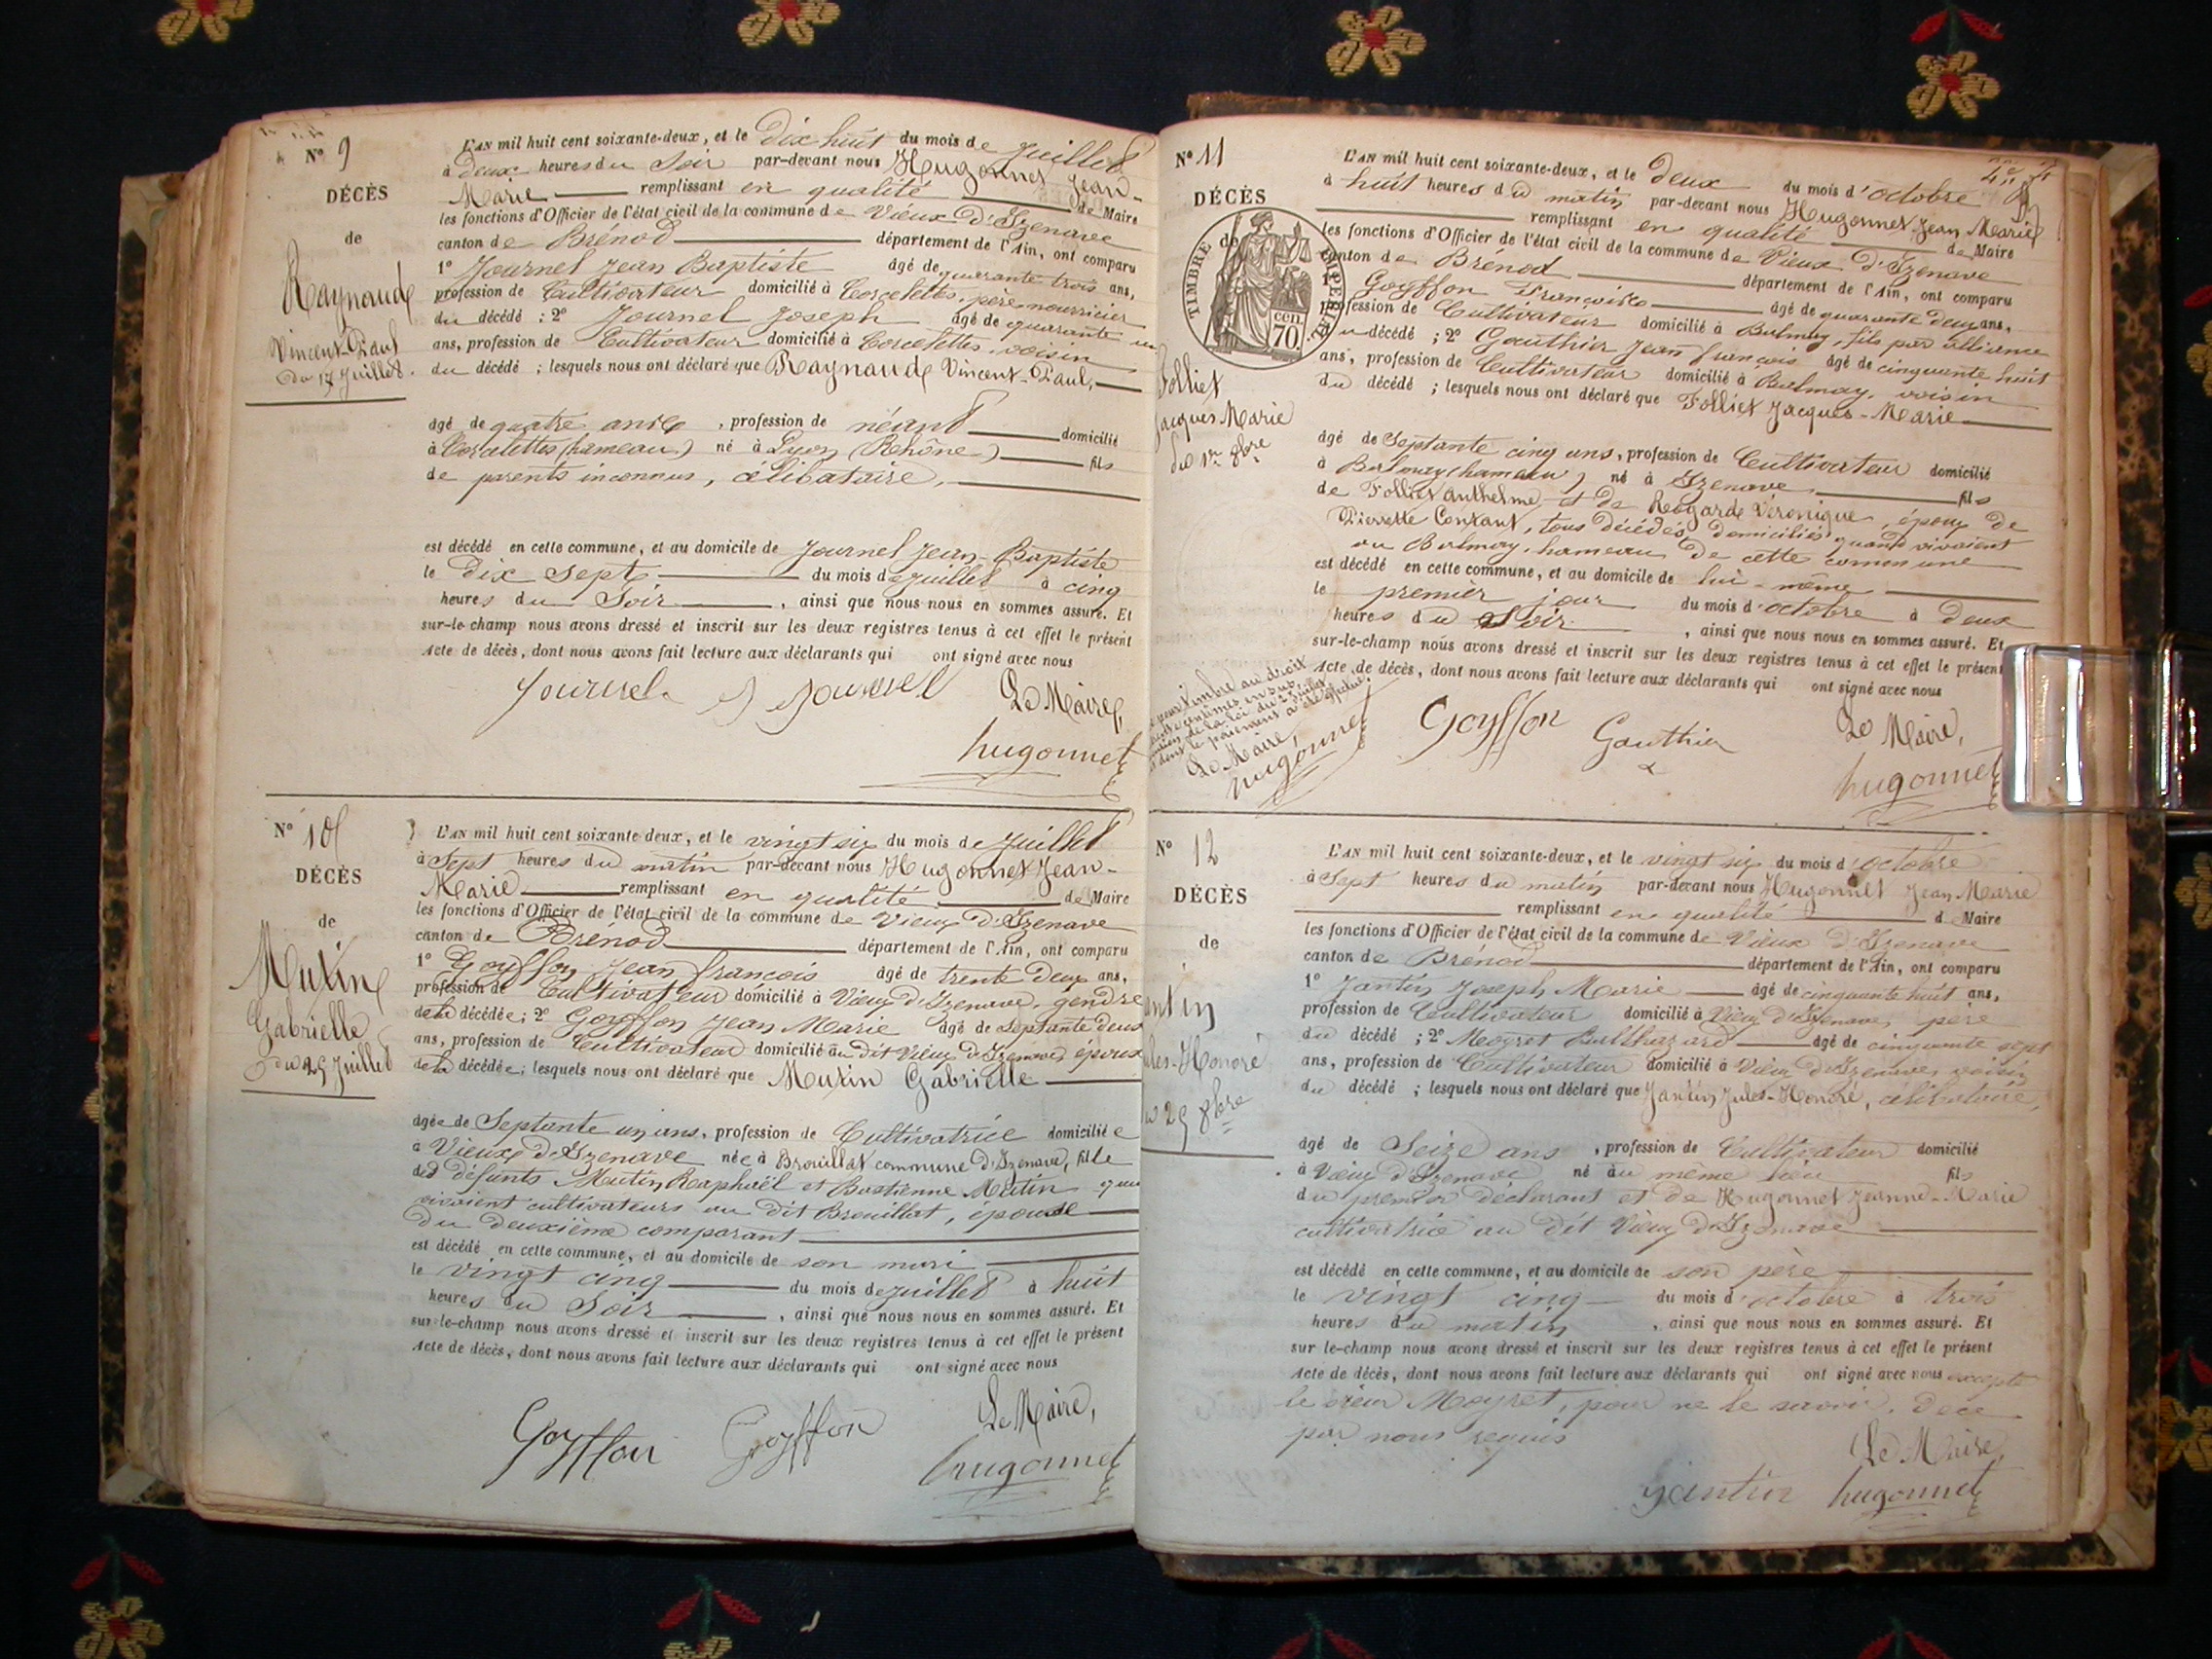 N° 9
DÉCÈS
de
Raynaud
Vincent-Paul
du 17 Juillet.
L'AN mil huit cent soixante-deux, et le dix huit du mois de Juillet
à deux heures du Soir par-devant nous Hugonnet Jean-
Marie remplissant en qualité de Maire
les fonctions d'Officier de l'état civil de la commune de Vieux d'Izenave
canton de Brénod département de l'Ain, ont comparu
1° Journel Jean Baptiste âgé de quarante trois ans,
profession de Cultivateur domicilié à Corcelettes, père-nourricier
du décédé ; 2° Journel Joseph âgé de quarante un
ans, profession de Cultivateur domicilié à Corcelettes, voisin
du décédé ; lesquels nous ont déclaré que Raynaud Vincent-Paul,
âgé de quatre ans , profession de néant domicilié
à Corcelettes (hameau) né à Lyon (Rhône) fils
de parents inconnus, célibataire,
est décédé en cette commune, et au domicile de Journel Jean-Baptiste
le dix sept du mois de Juillet à cinq
heures du Soir , ainsi que nous nous en sommes assuré. Et
sur-le-champ nous avons dressé et inscrit sur les deux registres tenus à cet effet le présent
Acte de décès, dont nous avons fait lecture aux déclarants qui ont signé avec nous
Journel J Journel Le Maire,
hugonnet
N° 10
DÉCÈS
de
Mutin
Gabrielle
du 25 Juillet
L'AN mil huit cent soixante-deux, et le vingt six du mois de Juillet
à Sept heures du matin par-devant nous Hugonnet Jean-
Marie remplissant en qualité de Maire
les fonctions d'Officier de l'état civil de la commune de Vieux d'Izenave
canton de Brénod département de l'Ain, ont comparu
1° Goyffon Jean françois âgé de trente deux ans,
profession de Cultivateur domicilié à Vieux d'Izenave, gendre
de la décédée ; 2° Goyffon Jean Marie âgé de septante deux
ans, profession de Cultivateur domicilié au dit Vieux d'Izenave, époux
de la décédée ; lesquels nous ont déclaré que Mutin Gabrielle
âgée de Septante un ans, profession de Cultivatrice domiciliée
à Vieux d'Izenave née à Brouillat commune d'Izenave, fille
des défunts Mutin Raphaël et Bastienne Mutin qui
vivaient cultivateurs au dit Brouillat, épouse
du deuxième comparant
est décédé en cette commune, et au domicile de son mari
le vingt cinq du mois de Juillet à huit
heures du Soir , ainsi que nous nous en sommes assuré. Et
sur-le-champ nous avons dressé et inscrit sur les deux registres tenus à cet effet le présent
Acte de décès, dont nous avons fait lecture aux déclarants qui ont signé avec nous
Goyffon Goyffon Le Maire,
hugonnet
N° 11
DÉCÈS
de
TIMBRE IMPÉRIAL
70 cen.
Folliet
Jacques Marie
du 1er 8bre
L'AN mil huit cent soixante-deux, et le deux du mois d'octobre
à huit heures du matin par-devant nous Hugonnet Jean Marie
remplissant en qualité de Maire
les fonctions d'Officier de l'état civil de la commune de Vieux d'Izenave
canton de Brénod département de l'Ain, ont comparu
1° Goyffon François âgé de quarante deux ans,
profession de Cultivateur domicilié à Balmay, fils par alliance
du décédé ; 2° Gauthier Jean françois âgé de cinquante huit
ans, profession de Cultivateur domicilié à Balmay, voisin
du décédé ; lesquels nous ont déclaré que Folliet Jacques-Marie
âgé de Septante cinq ans, profession de Cultivateur domicilié
à Balmay (hameau) né à Izenave fils
de Folliet Anthelme et de Rogarde Véronique, époux de
Pierrette Contant, tous décédés, domiciliés quand vivaient
au Balmay, hameau de cette commune
est décédé en cette commune, et au domicile de lui-même
le premier jour du mois d'octobre à deux
heures du Soir , ainsi que nous nous en sommes assuré. Et
sur-le-champ nous avons dressé et inscrit sur les deux registres tenus à cet effet le présent
Acte de décès, dont nous avons fait lecture aux déclarants qui ont signé avec nous
pour timbre au droit
centimes en sus,
de la loi du 2 Juillet
dont le paiement a été effectué.
Le Maire,
hugonnet
Goyffon Gauthier Le Maire,
hugonnet
N° 12
DÉCÈS
de
antin
les-Honoré
25 8bre
L'AN mil huit cent soixante-deux, et le vingt six du mois d'octobre
à Sept heures du matin par-devant nous Hugonnet Jean Marie
remplissant en qualité d Maire
les fonctions d'Officier de l'état civil de la commune de Vieux d'Izenave
canton de Brénod département de l'Ain, ont comparu
1° Jantin Joseph Marie âgé de cinquante huit ans,
profession de Cultivateur domicilié à Vieux d'Izenave, père
du décédé ; 2° Meyret Balthazard âgé de cinquante sept
ans, profession de Cultivateur domicilié à Vieux d'Izenave, voisin
du décédé ; lesquels nous ont déclaré que Jantin Jules-Honoré, célibataire,
âgé de Seize ans , profession de Cultivateur domicilié
à Vieux d'Izenave né au même lieu fils
du premier déclarant et de Hugonnet Jeanne-Marie
cultivatrice au dit Vieux d'Izenave
est décédé en cette commune, et au domicile de son père
le vingt cinq du mois d'octobre à trois
heures du matin , ainsi que nous nous en sommes assuré. Et
sur-le-champ nous avons dressé et inscrit sur les deux registres tenus à cet effet le présent
Acte de décès, dont nous avons fait lecture aux déclarants qui ont signé avec nous excepté
le sieur Meyret, pour ne le savoir, de ce
par nous requis
Le Maire,
Jantin hugonnet